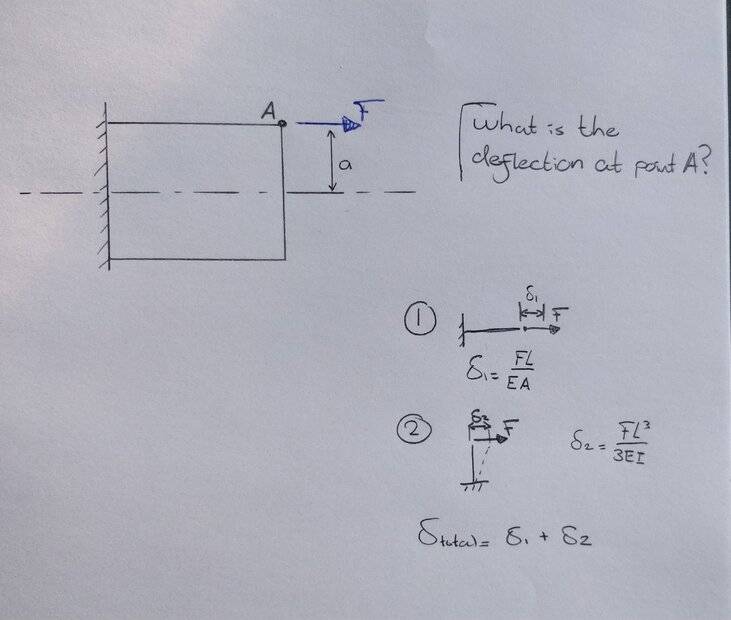 A
F
a
What is the
deflection at point A?
1
δ₁
F
δ₁ = FL/EA
2
δ₂
F
δ₂ = FL³/3EI
δtotal = δ₁ + δ₂